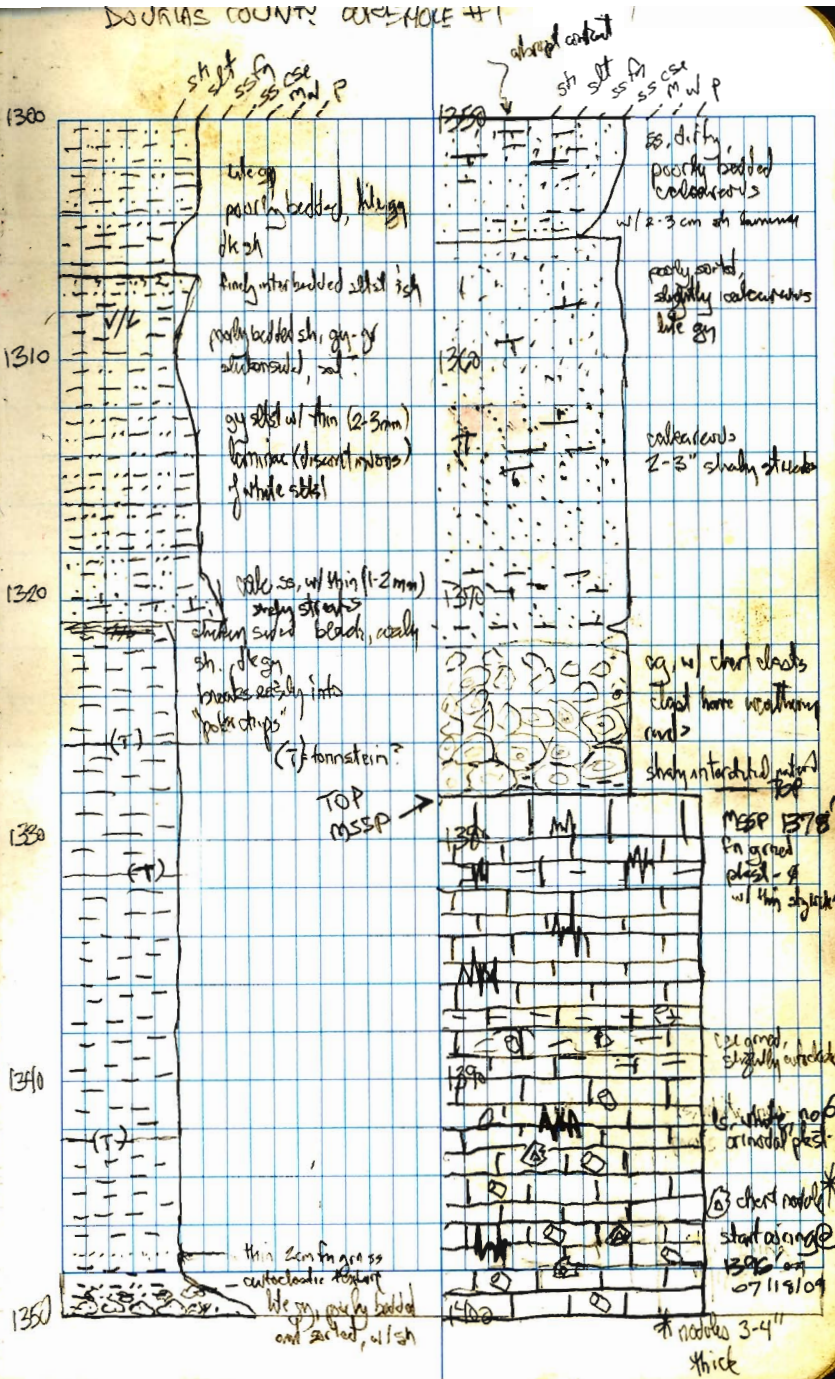 DOUGLAS COUNTY COREHOLE #1
sh slt ss fn ss cse m w p
1300
lite gy
poorly bedded, lite gy
dk sh
finely interbedded sltst & sh
poorly bedded sh, gy-gr
slickensided,
1310
gy sltst w/ thin (2-3mm)
laminae (discontinuous)
of white sltst
1320
calc ss, w/ thin (1-2mm)
shaly streaks
black, coaly
sh, dk gy
breaks easily into
"poker chips"
(T)
(T) = tonnstein?
1330
(T)
1340
(T)
thin 2cm fn gr ss
autoclastic texture
lite gy, poorly bedded
and sorted, w/ sh
1350
abrupt contact
sh slt ss fn ss cse m w p
1350
ss, dirty,
poorly bedded
calcareous
w/ 2-3 cm sh laminae
poorly sorted,
slightly calcareous
lite gy
1360
calcareous
2-3" shaly streaks
1370
cg, w/ chert clasts
clast have weathering
rinds
shaly interstitial material
TOP
TOP
MSSP
MSSP 1378'
1380
fn grned
pkst-
w/ thin
cse grned,
slightly
1390
ls, white,
crinoidal pkst-
chert nodule*
start coring @
1396' on
07/18/09
1400
* nodules 3-4"
thick